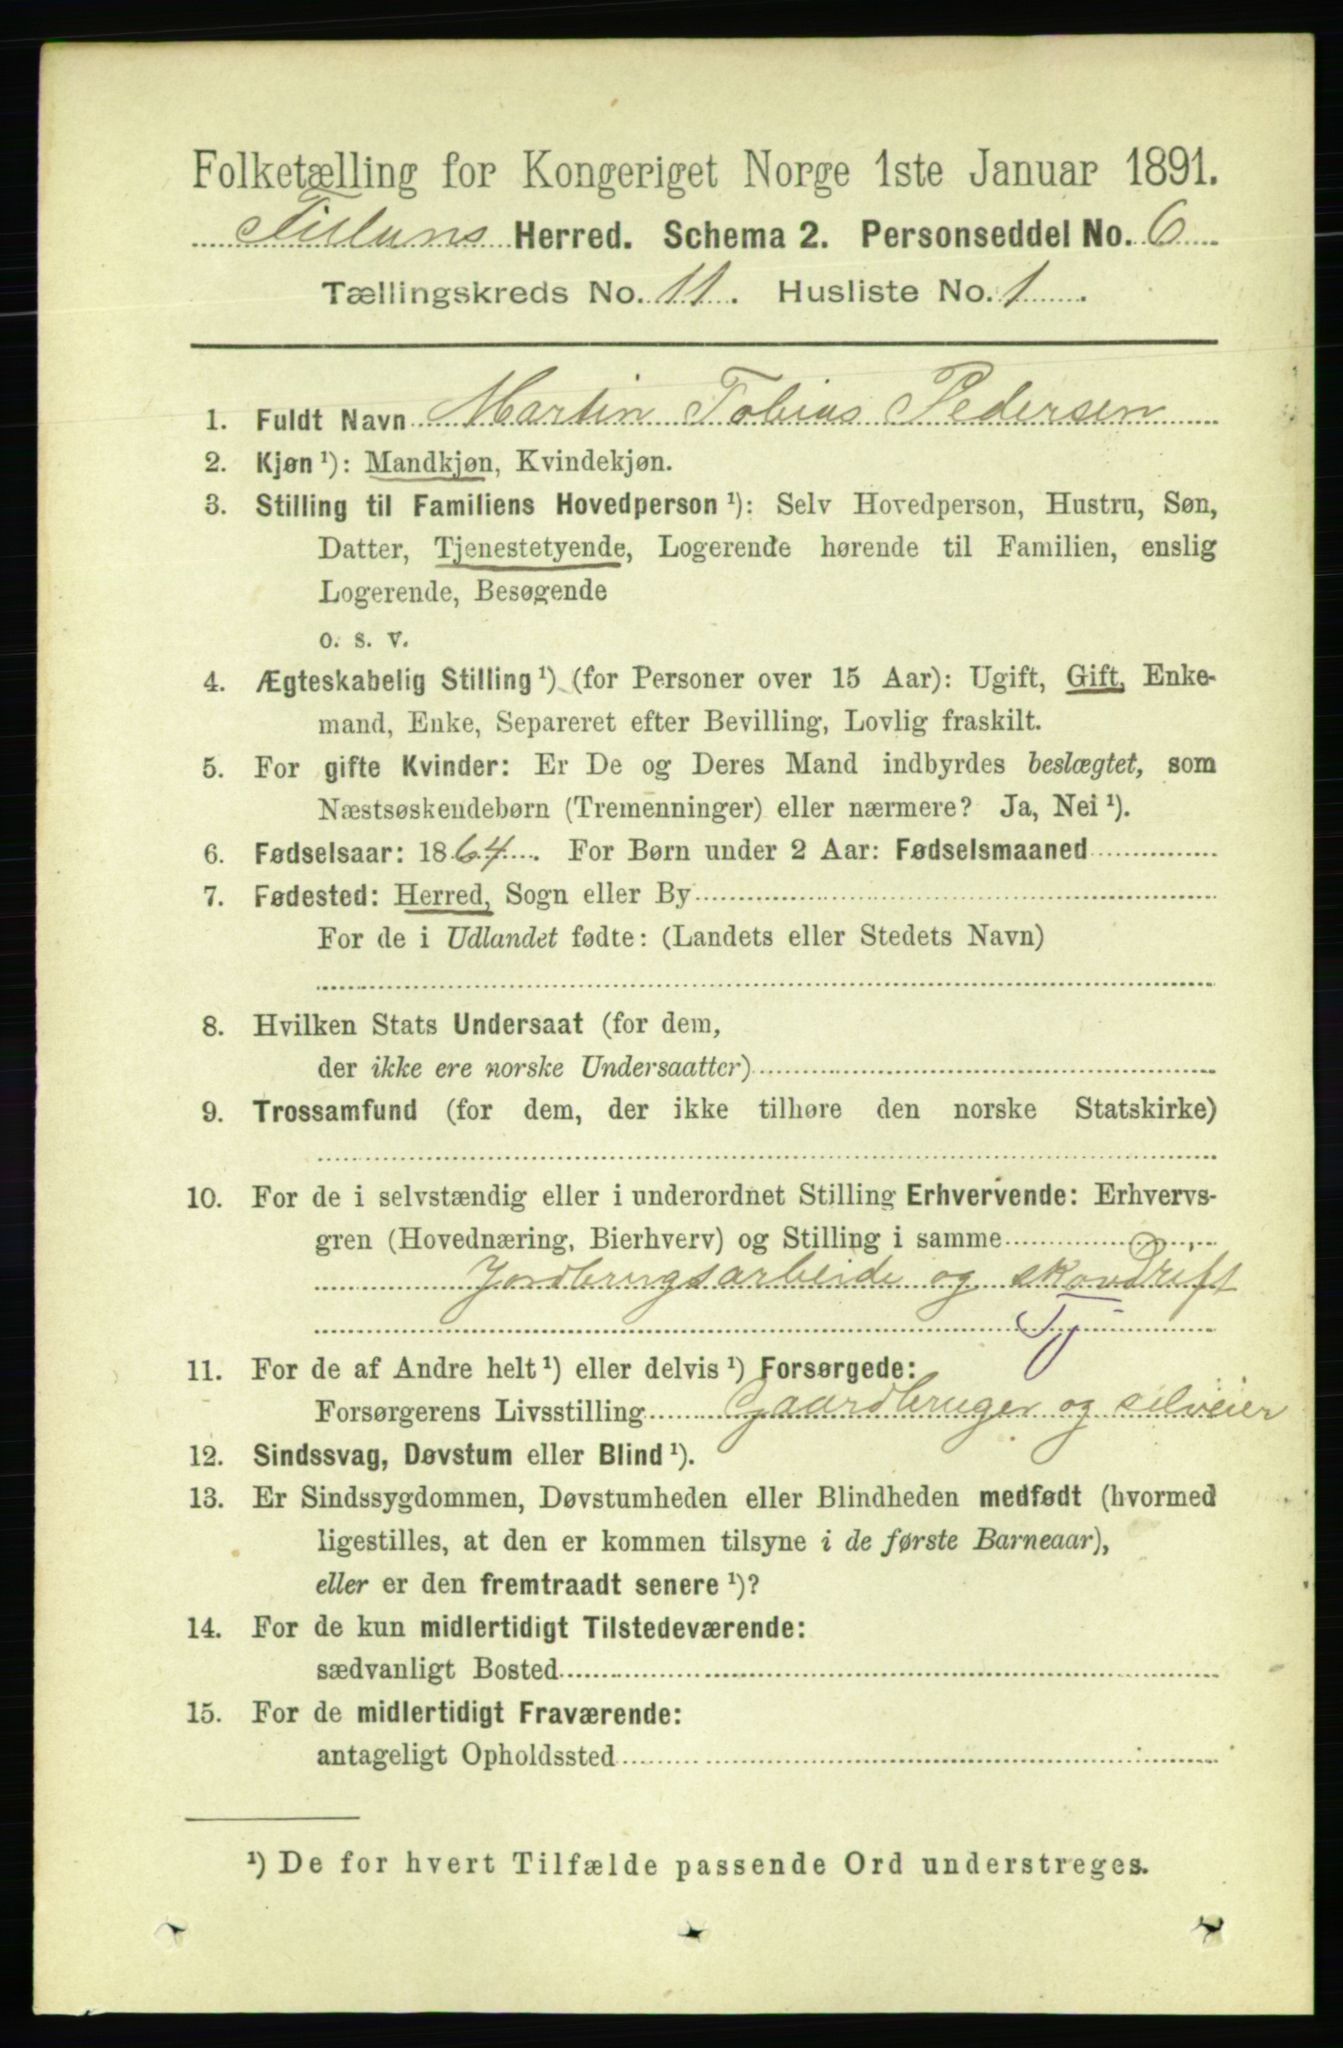 Folketælling for Kongeriget Norge 1ste Januar 1891.
Herred. Schema 2. Personseddel No. 6
Tællingskreds No. 11. Husliste No. 1
1. Fuldt Navn Martin Tobias Pedersen
2. Kjøn ¹): Mandkjøn, Kvindekjøn.
3. Stilling til Familiens Hovedperson ¹): Selv Hovedperson, Hustru, Søn,
Datter, Tjenestetyende, Logerende hørende til Familien, enslig
Logerende, Besøgende
o. s. v.
4. Ægteskabelig Stilling ¹) (for Personer over 15 Aar): Ugift, Gift, Enke-
mand, Enke, Separeret efter Bevilling, Lovlig fraskilt.
5. For gifte Kvinder: Er De og Deres Mand indbyrdes beslægtet, som
Næstsøskendebørn (Tremenninger) eller nærmere? Ja, Nei ¹).
6. Fødselsaar: 1864. For Børn under 2 Aar: Fødselsmaaned
7. Fødested: Herred, Sogn eller By
For de i Udlandet fødte: (Landets eller Stedets Navn)
8. Hvilken Stats Undersaat (for dem,
der ikke ere norske Undersaatter)
9. Trossamfund (for dem, der ikke tilhøre den norske Statskirke)
10. For de i selvstændig eller i underordnet Stilling Erhvervende: Erhvervs-
gren (Hovednæring, Bierhverv) og Stilling i samme
Jordbrugsarbeide og skovdrift
Tj
11. For de af Andre helt ¹) eller delvis ¹) Forsørgede:
Forsørgerens Livsstilling Gaardbruger og selveier
12. Sindssvag, Døvstum eller Blind ¹).
13. Er Sindssygdommen, Døvstumheden eller Blindheden medfødt (hvormed
ligestilles, at den er kommen tilsyne i de første Barneaar),
eller er den fremtraadt senere ¹)?
14. For de kun midlertidigt Tilstedeværende:
sædvanligt Bosted
15. For de midlertidigt Fraværende:
antageligt Opholdssted
¹) De for hvert Tilfælde passende Ord understreges.